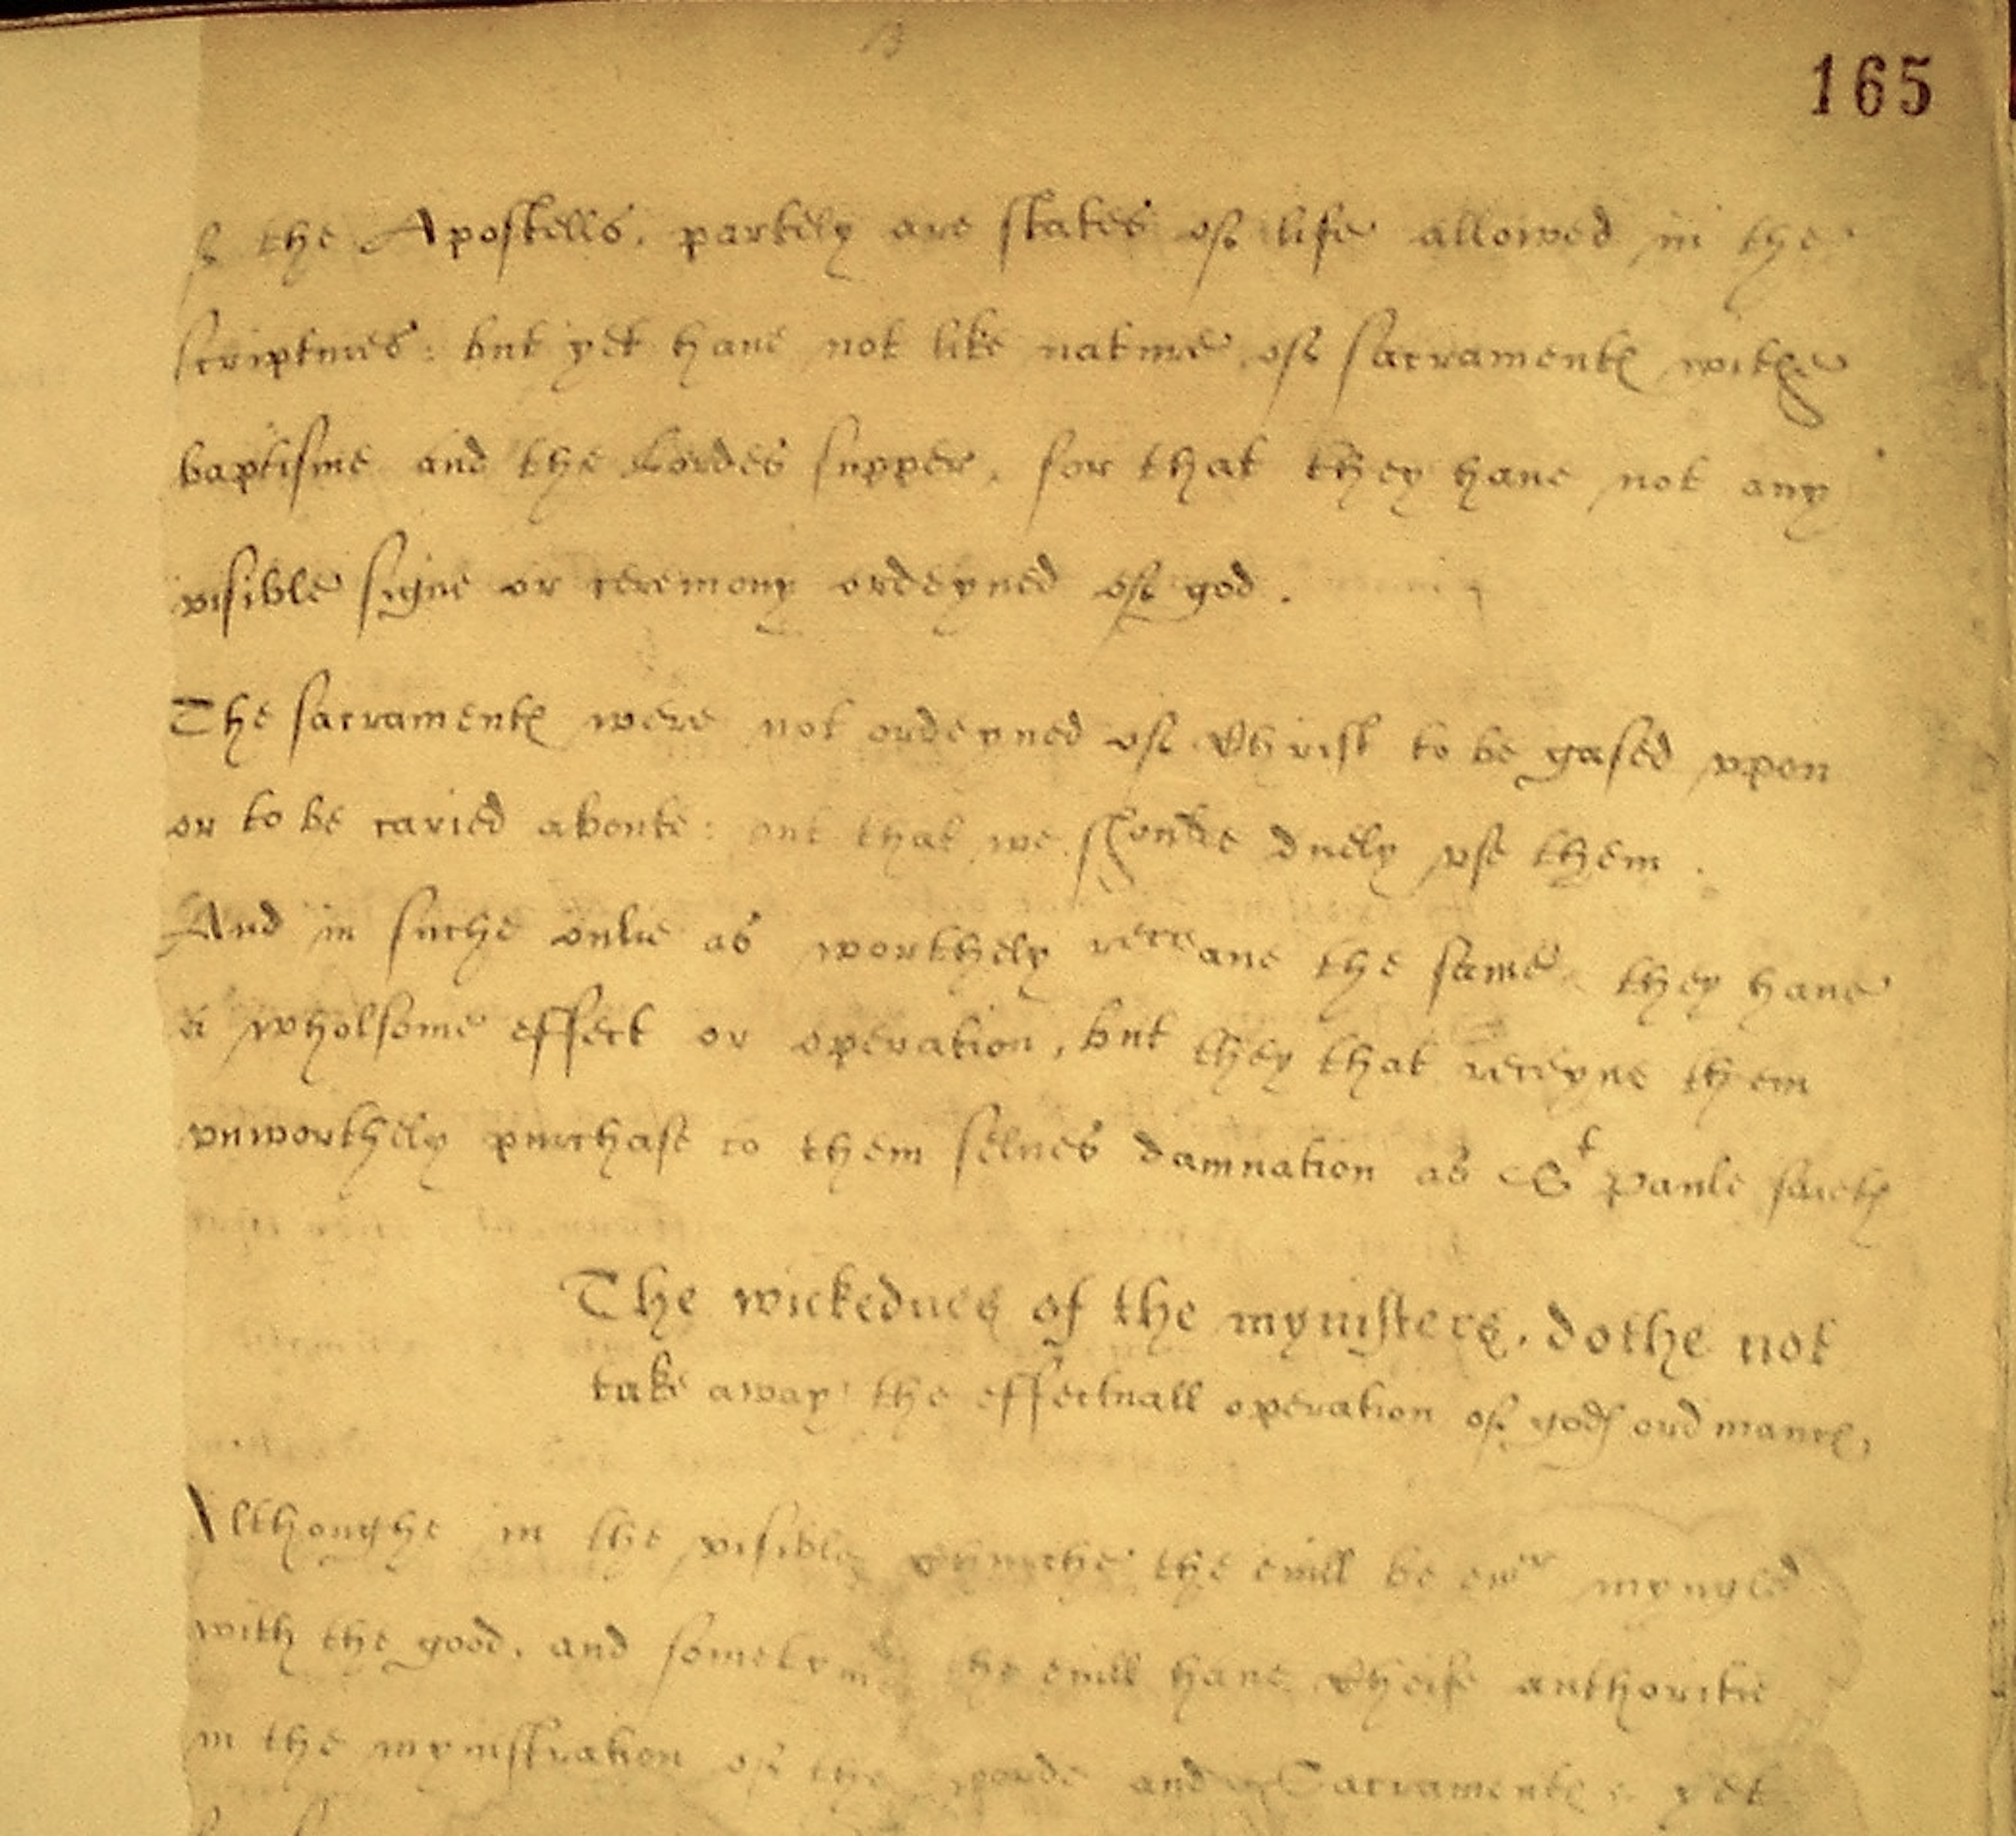 165
the Apostells, partely are states of life allowed in the
scriptures: but yet haue not like nature of sacramentes withe
baptisme and the Lordes supper, for that they haue not any
visible signe or ceremony ordeyned of god.
The sacramentes were not ordeyned of Christ to be gased vpon
or to be caried aboute: but that we shoulde duely vse them.
And in suche onlie as worthely receaue the same they haue
a wholsome effect or operation, but they that receyue them
vnworthely purchase to them selues damnation as St Paule saieth
The wickednes of the mynisters, dothe not
take away the effectuall operation of gods ordinances,
Althoughe in the visible churche the euill be euer myngled
with the good, and sometymes the euill haue cheife authoritie
in the mynistration of the worde and Sacramentes: yet